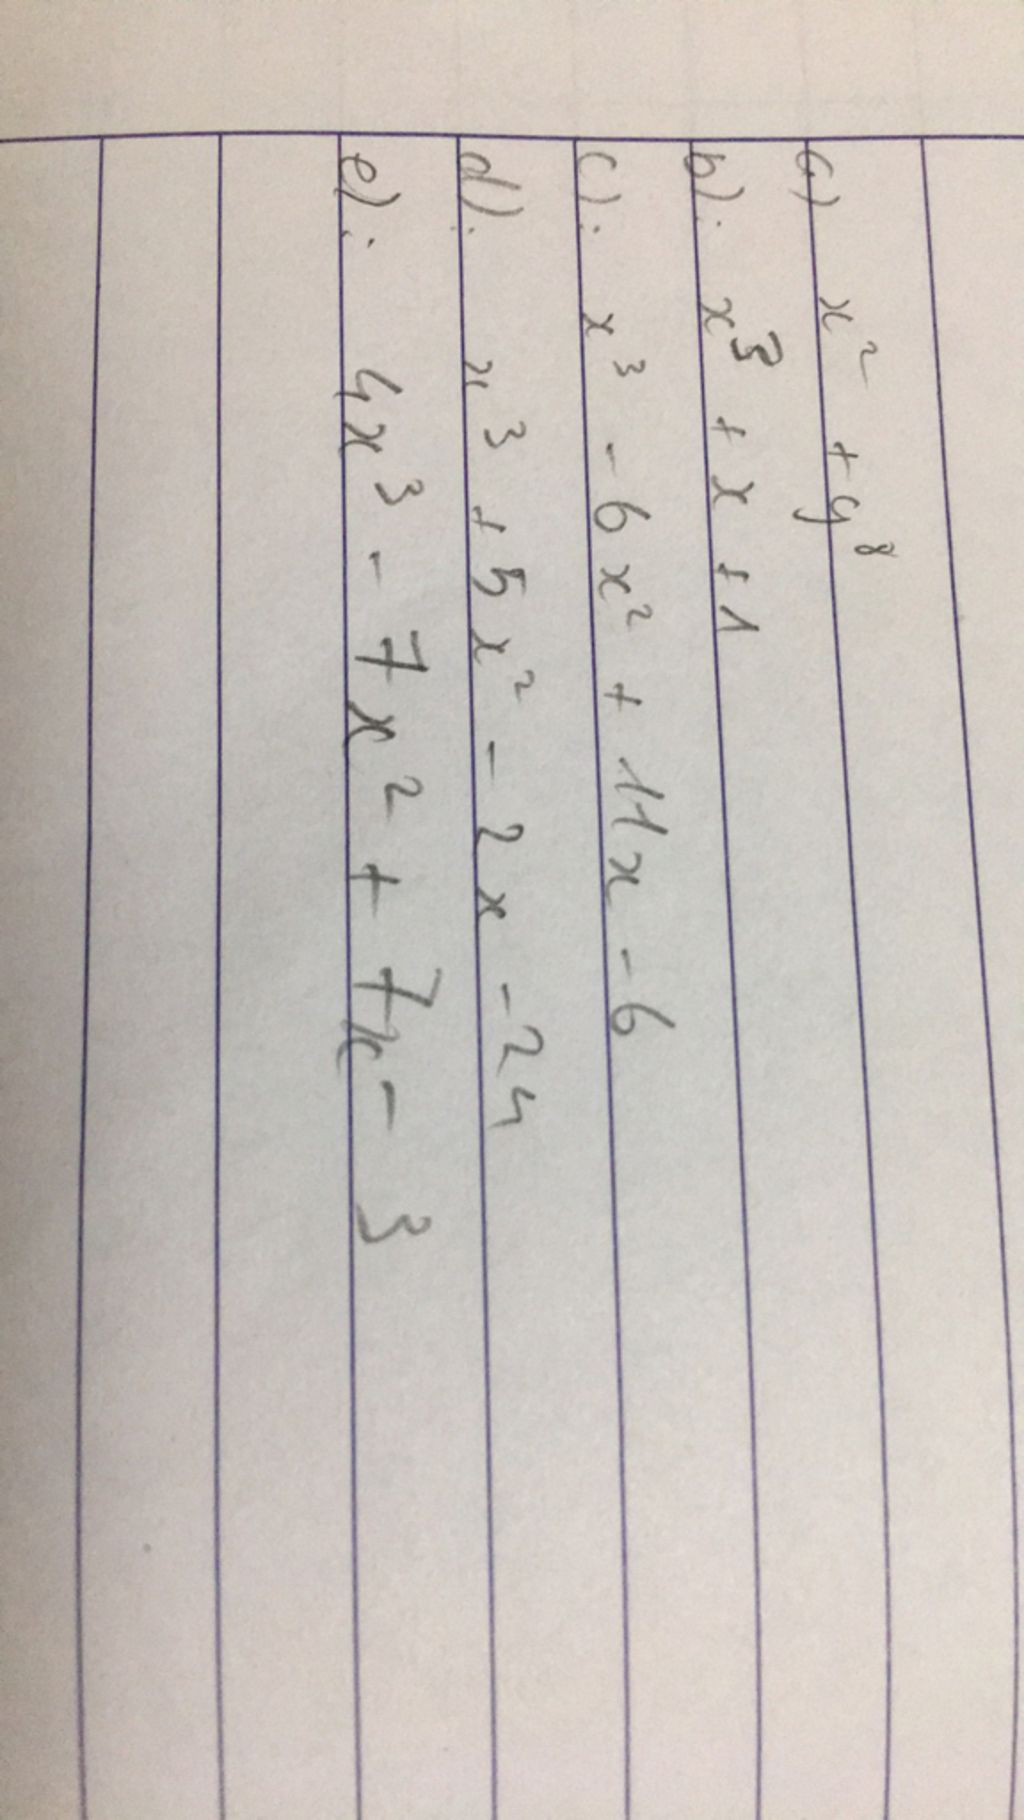 a) x² + y⁸
b): x³ + x + 1
c): x³ - 6x² + 11x - 6
d): x³ + 5x² - 2x - 24
e): 4x³ - 7x² + 7x - 3